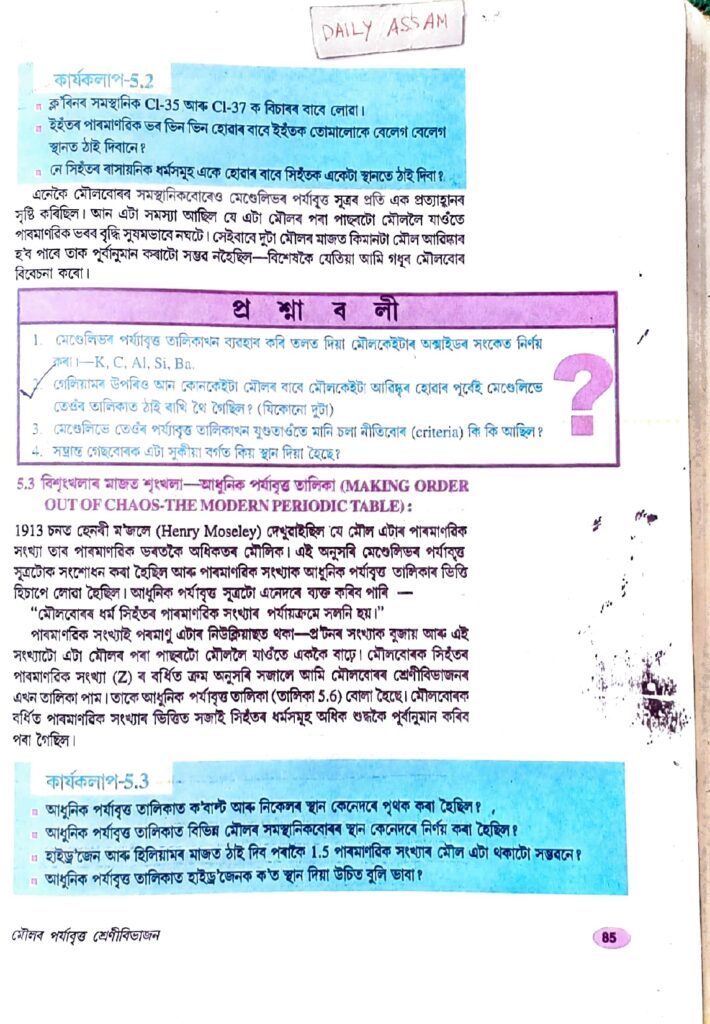 DAILY ASSAM
কার্যকলাপ-5.2
ক্ল'ৰিনৰ সমস্থানিক Cl-35 আৰু Cl-37 ক বিচাৰৰ বাবে লোৱা।
ইহঁতৰ পাৰমাণৱিক ভৰ ভিন ভিন হোৱাৰ বাবে ইহঁতক তোমালোকে বেলেগ বেলেগ
স্থানত ঠাই দিবানে?
নে সিহঁতৰ ৰাসায়নিক ধৰ্মসমূহ একে হোৱাৰ বাবে সিহঁতক একেটা স্থানতে ঠাই দিবা?
এনেকৈ মৌলবোৰৰ সমস্থানিকবোৰেও মেণ্ডেলিভৰ পৰ্যাবৃত্ত সূত্ৰৰ প্ৰতি এক প্ৰত্যাহ্বানৰ
সৃষ্টি কৰিছিল। আন এটা সমস্যা আছিল যে এটা মৌলৰ পৰা পাছৰটো মৌললৈ যাওঁতে
পাৰমাণৱিক ভৰৰ বৃদ্ধি সুষমভাবে নঘটে। সেইবাবে দুটা মৌলৰ মাজত কিমানটা মৌল আৱিষ্কাৰ
হ'ব পাৰে তাক পূৰ্বানুমান কৰাটো সম্ভৱ নহৈছিল—বিশেষকৈ যেতিয়া আমি গধূৰ মৌলবোৰ
বিবেচনা কৰো।
প্ৰ শ্না ব লী
1. মেণ্ডেলিভৰ পৰ্য্যাবৃত্ত তালিকাখন ব্যৱহাৰ কৰি তলত দিয়া মৌলকেইটাৰ অক্সাইডৰ সংকেত নিৰ্ণয়
কৰা।—K, C, Al, Si, Ba.
2. গেলিয়ামৰ উপৰিও আন কোনকেইটা মৌলৰ বাবে মৌলকেইটা আৱিষ্কৃত হোৱাৰ পূৰ্বেই মেণ্ডেলিভে
তেওঁৰ তালিকাত ঠাই ৰাখি থৈ গৈছিল? (যিকোনো দুটা)
3. মেণ্ডেলিভে তেওঁৰ পৰ্য্যাবৃত্ত তালিকাখন যুগুতাওঁতে মানি চলা নীতিবোৰ (criteria) কি কি আছিল?
4. সম্ভ্ৰান্ত গেছবোৰক এটা সুকীয়া বৰ্গত কিয় স্থান দিয়া হৈছে?
?
5.3 বিশৃংখলাৰ মাজত শৃংখলা—আধুনিক পৰ্যাবৃত্ত তালিকা (MAKING ORDER
OUT OF CHAOS-THE MODERN PERIODIC TABLE) :
1913 চনত হেনৰী ম'জলে (Henry Moseley) দেখুৱাইছিল যে মৌল এটাৰ পাৰমাণৱিক
সংখ্যা তাৰ পাৰমাণৱিক ভৰতকৈ অধিকতৰ মৌলিক। এই অনুসৰি মেণ্ডেলিভৰ পৰ্যাবৃত্ত
সূত্ৰটোক সংশোধন কৰা হৈছিল আৰু পাৰমাণৱিক সংখ্যাক আধুনিক পৰ্যাবৃত্ত তালিকাৰ ভিত্তি
হিচাপে লোৱা হৈছিল। আধুনিক পৰ্যাবৃত্ত সূত্ৰটো এনেদৰে ব্যক্ত কৰিব পাৰি —
“মৌলবোৰৰ ধৰ্ম সিহঁতৰ পাৰমাণৱিক সংখ্যাৰ পৰ্যায়ক্ৰমে সলনি হয়।”
পাৰমাণৱিক সংখ্যাই পৰমাণু এটাৰ নিউক্লিয়াছত থকা—প্ৰ'টনৰ সংখ্যাক বুজায় আৰু এই
সংখ্যাটো এটা মৌলৰ পৰা পাছৰটো মৌললৈ যাওঁতে এককৈ বাঢ়ে। মৌলবোৰক সিহঁতৰ
পাৰমাণৱিক সংখ্যা (Z) ৰ বৰ্ধিত ক্ৰম অনুসৰি সজালে আমি মৌলবোৰৰ শ্ৰেণীবিভাজনৰ
এখন তালিকা পাম। তাকে আধুনিক পৰ্যাবৃত্ত তালিকা (তালিকা 5.6) বোলা হৈছে। মৌলবোৰক
বৰ্ধিত পাৰমাণৱিক সংখ্যাৰ ভিত্তিত সজাই সিহঁতৰ ধৰ্মসমূহ অধিক শুদ্ধকৈ পূৰ্বানুমান কৰিব
পৰা গৈছিল।
কার্যকলাপ-5.3
আধুনিক পৰ্যাবৃত্ত তালিকাত ক'বাল্ট আৰু নিকেলৰ স্থান কেনেদৰে পৃথক কৰা হৈছিল?
আধুনিক পৰ্যাবৃত্ত তালিকাত বিভিন্ন মৌলৰ সমস্থানিকবোৰৰ স্থান কেনেদৰে নিৰ্ণয় কৰা হৈছিল?
হাইড্ৰ'জেন আৰু হিলিয়ামৰ মাজত ঠাই দিব পৰাকৈ 1.5 পাৰমাণৱিক সংখ্যাৰ মৌল এটা থকাটো সম্ভৱনে?
আধুনিক পৰ্যাবৃত্ত তালিকাত হাইড্ৰ'জেনক ক'ত স্থান দিয়া উচিত বুলি ভাবা?
মৌলৰ পৰ্যাবৃত্ত শ্ৰেণীবিভাজন
85